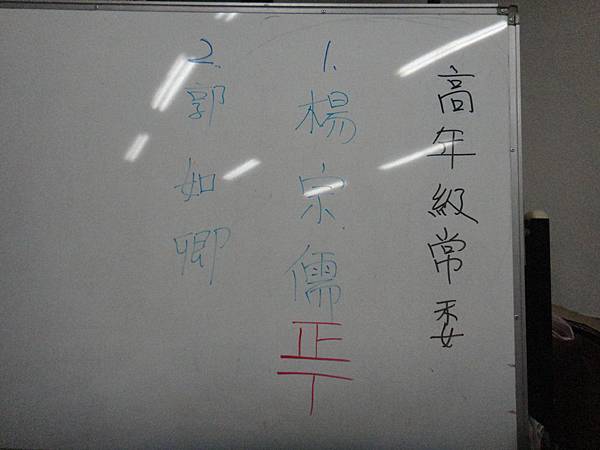 高年級常委
1.楊宗儒正丅
2.郭如卿